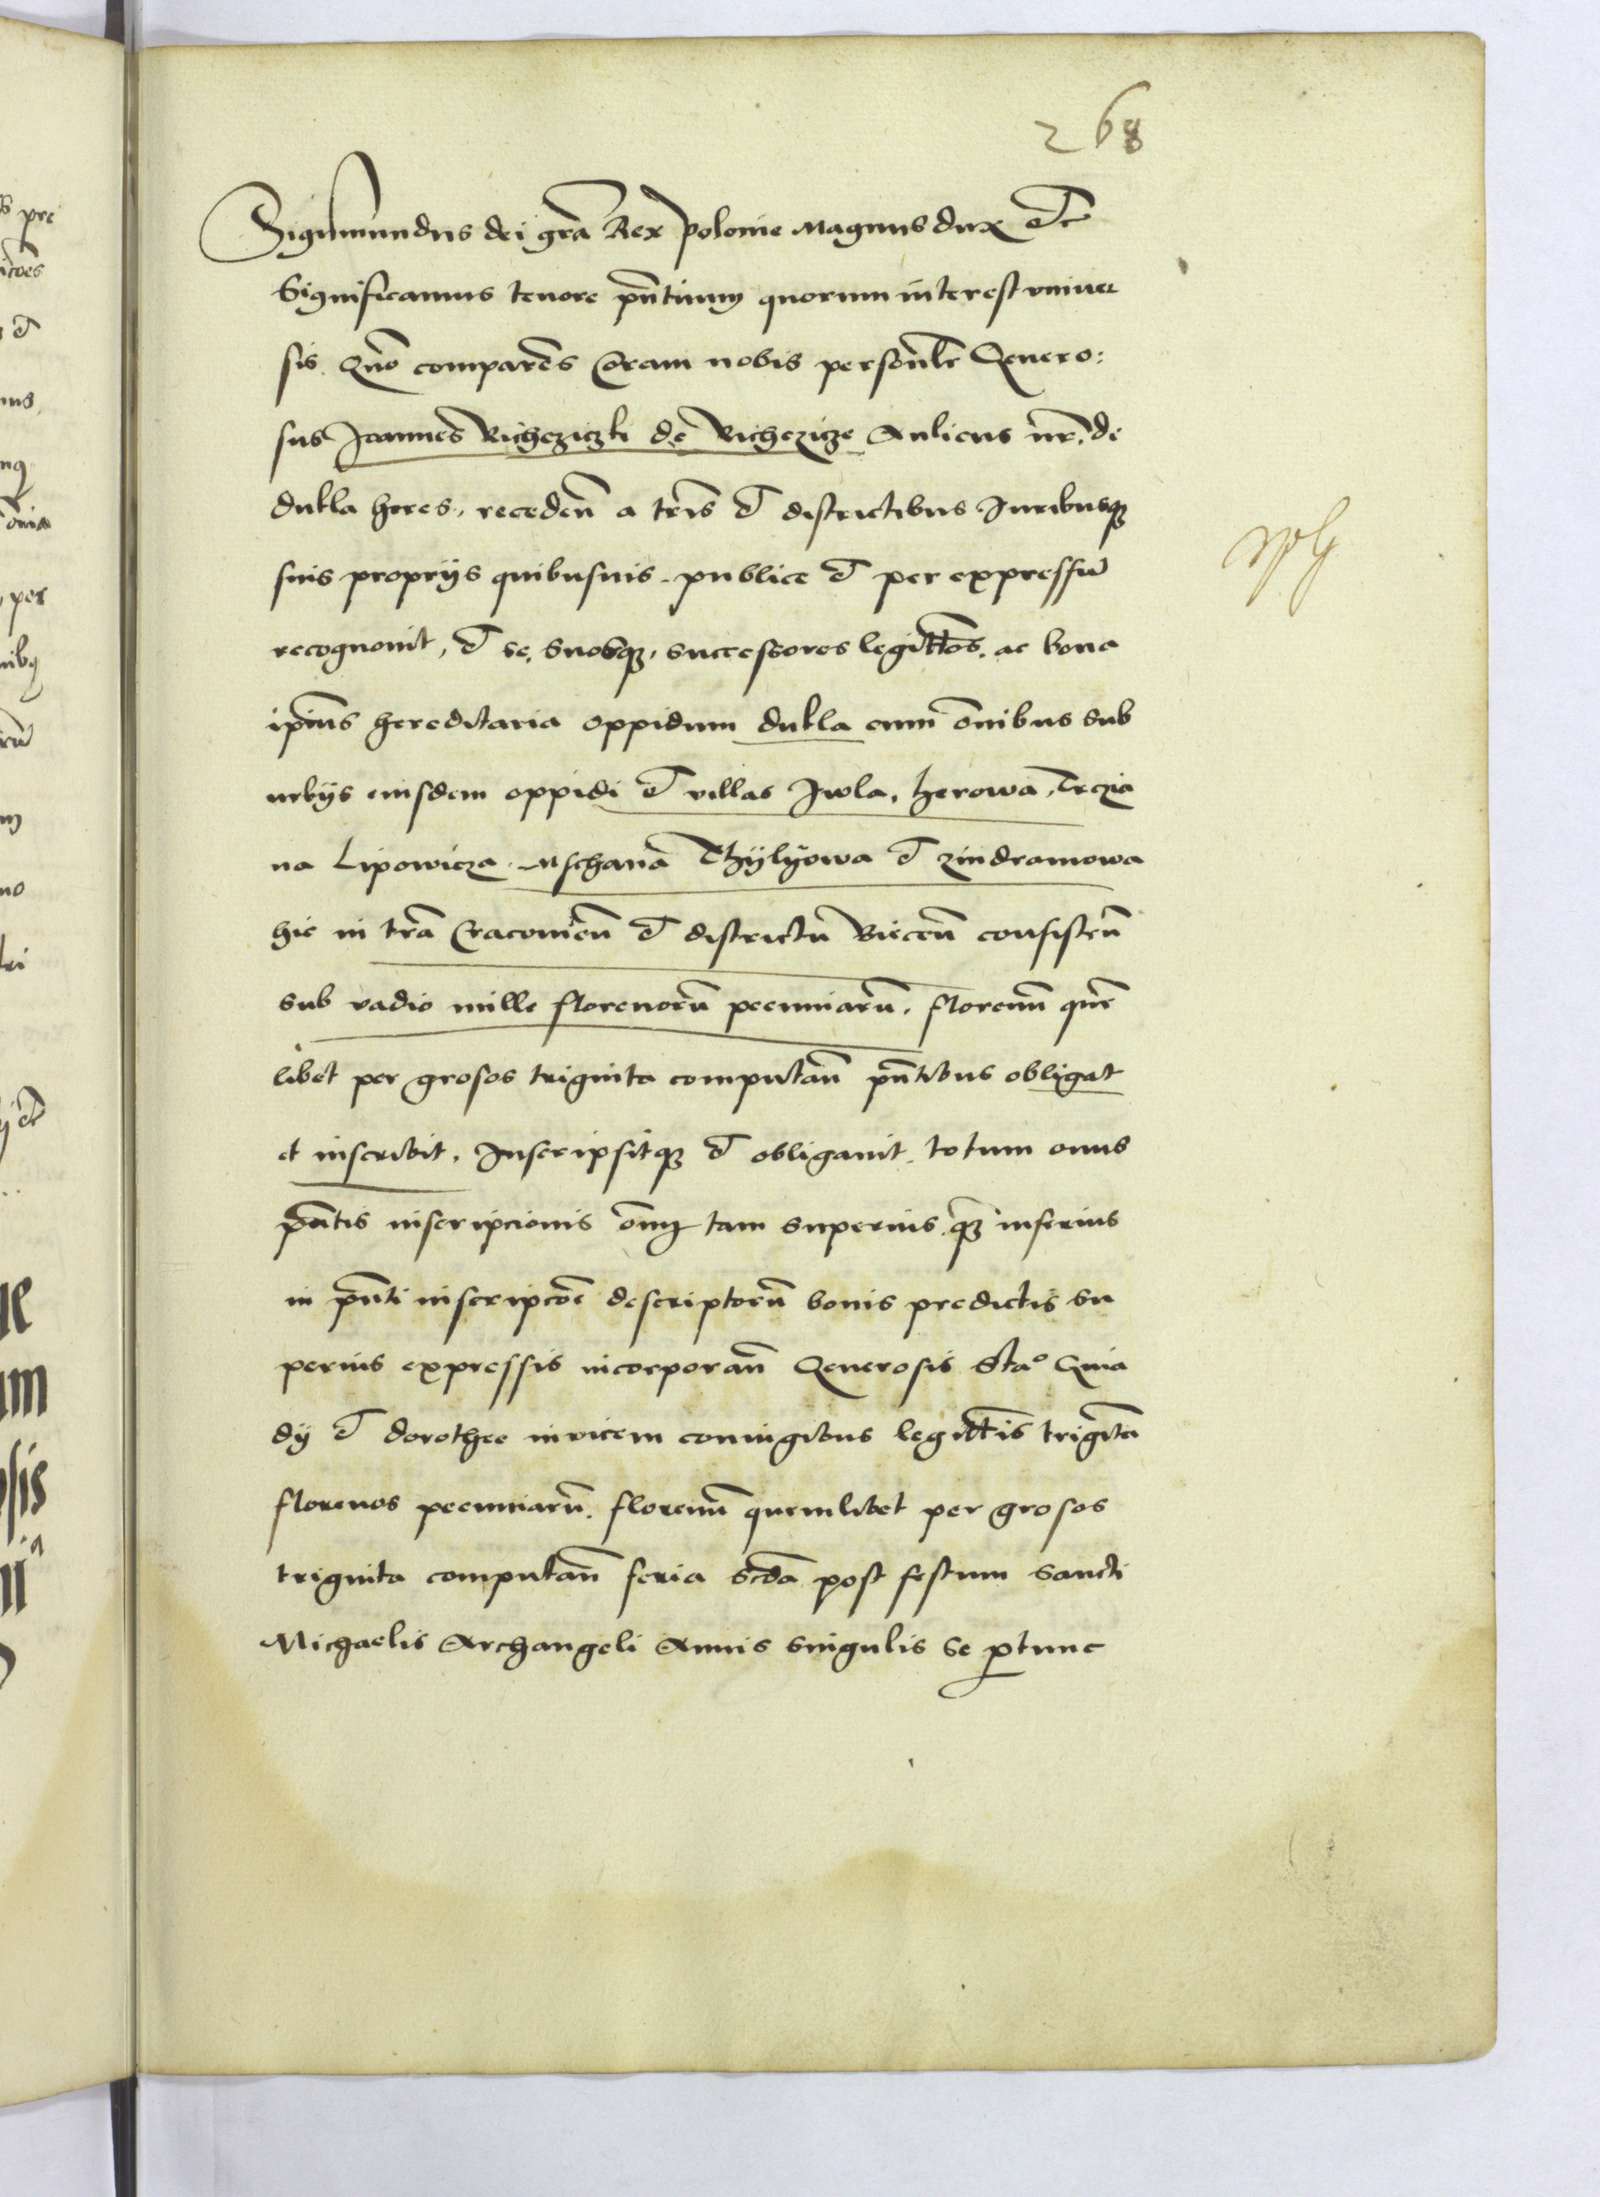 268
Sigismundus dei gra Rex Polonie Magnus dux etc
Significamus tenore pntium quorum interest vniuer
sis. Quo comparens Coram nobis personalr Genero:
sus Joannes Vichezizki de Vichezicze Aulicus nr, de
dukla heres, receden a tris et districtibus Juribusque
suis proprijs quibusuis. publice et per expressum
recognouit, et se, suosque, successores legittos. ac bona
ipsius hereditaria oppidum dukla cum omnibus sub
urbijs eiusdem oppidi et villas Jwla, herowa, Teczia
na Lipowicza. Mschana Thÿlÿowa et zindramowa
hic in tra Cracouien et districtu Biecen consisten
sub vadio mille florenoru pecuniaru, florenum quem
libet per grosos triginta computan pntibus obligat
et inscribit, Inscripsitque et obligauit. totum onus
pntis inscripcionis omni tam superius. quam inferius
in pnti inscripcoe descriptoru bonis predictis su
perius expressis incorporan Generosis Sta° Gnia
dÿ et dorothee inuicem coniugibus legittis triginta
florenos pecuniaru. florenum quemlibet per grosos
triginta computan feria scda post festum Sancti
Michaelis Archangeli Annis singulis se protunc